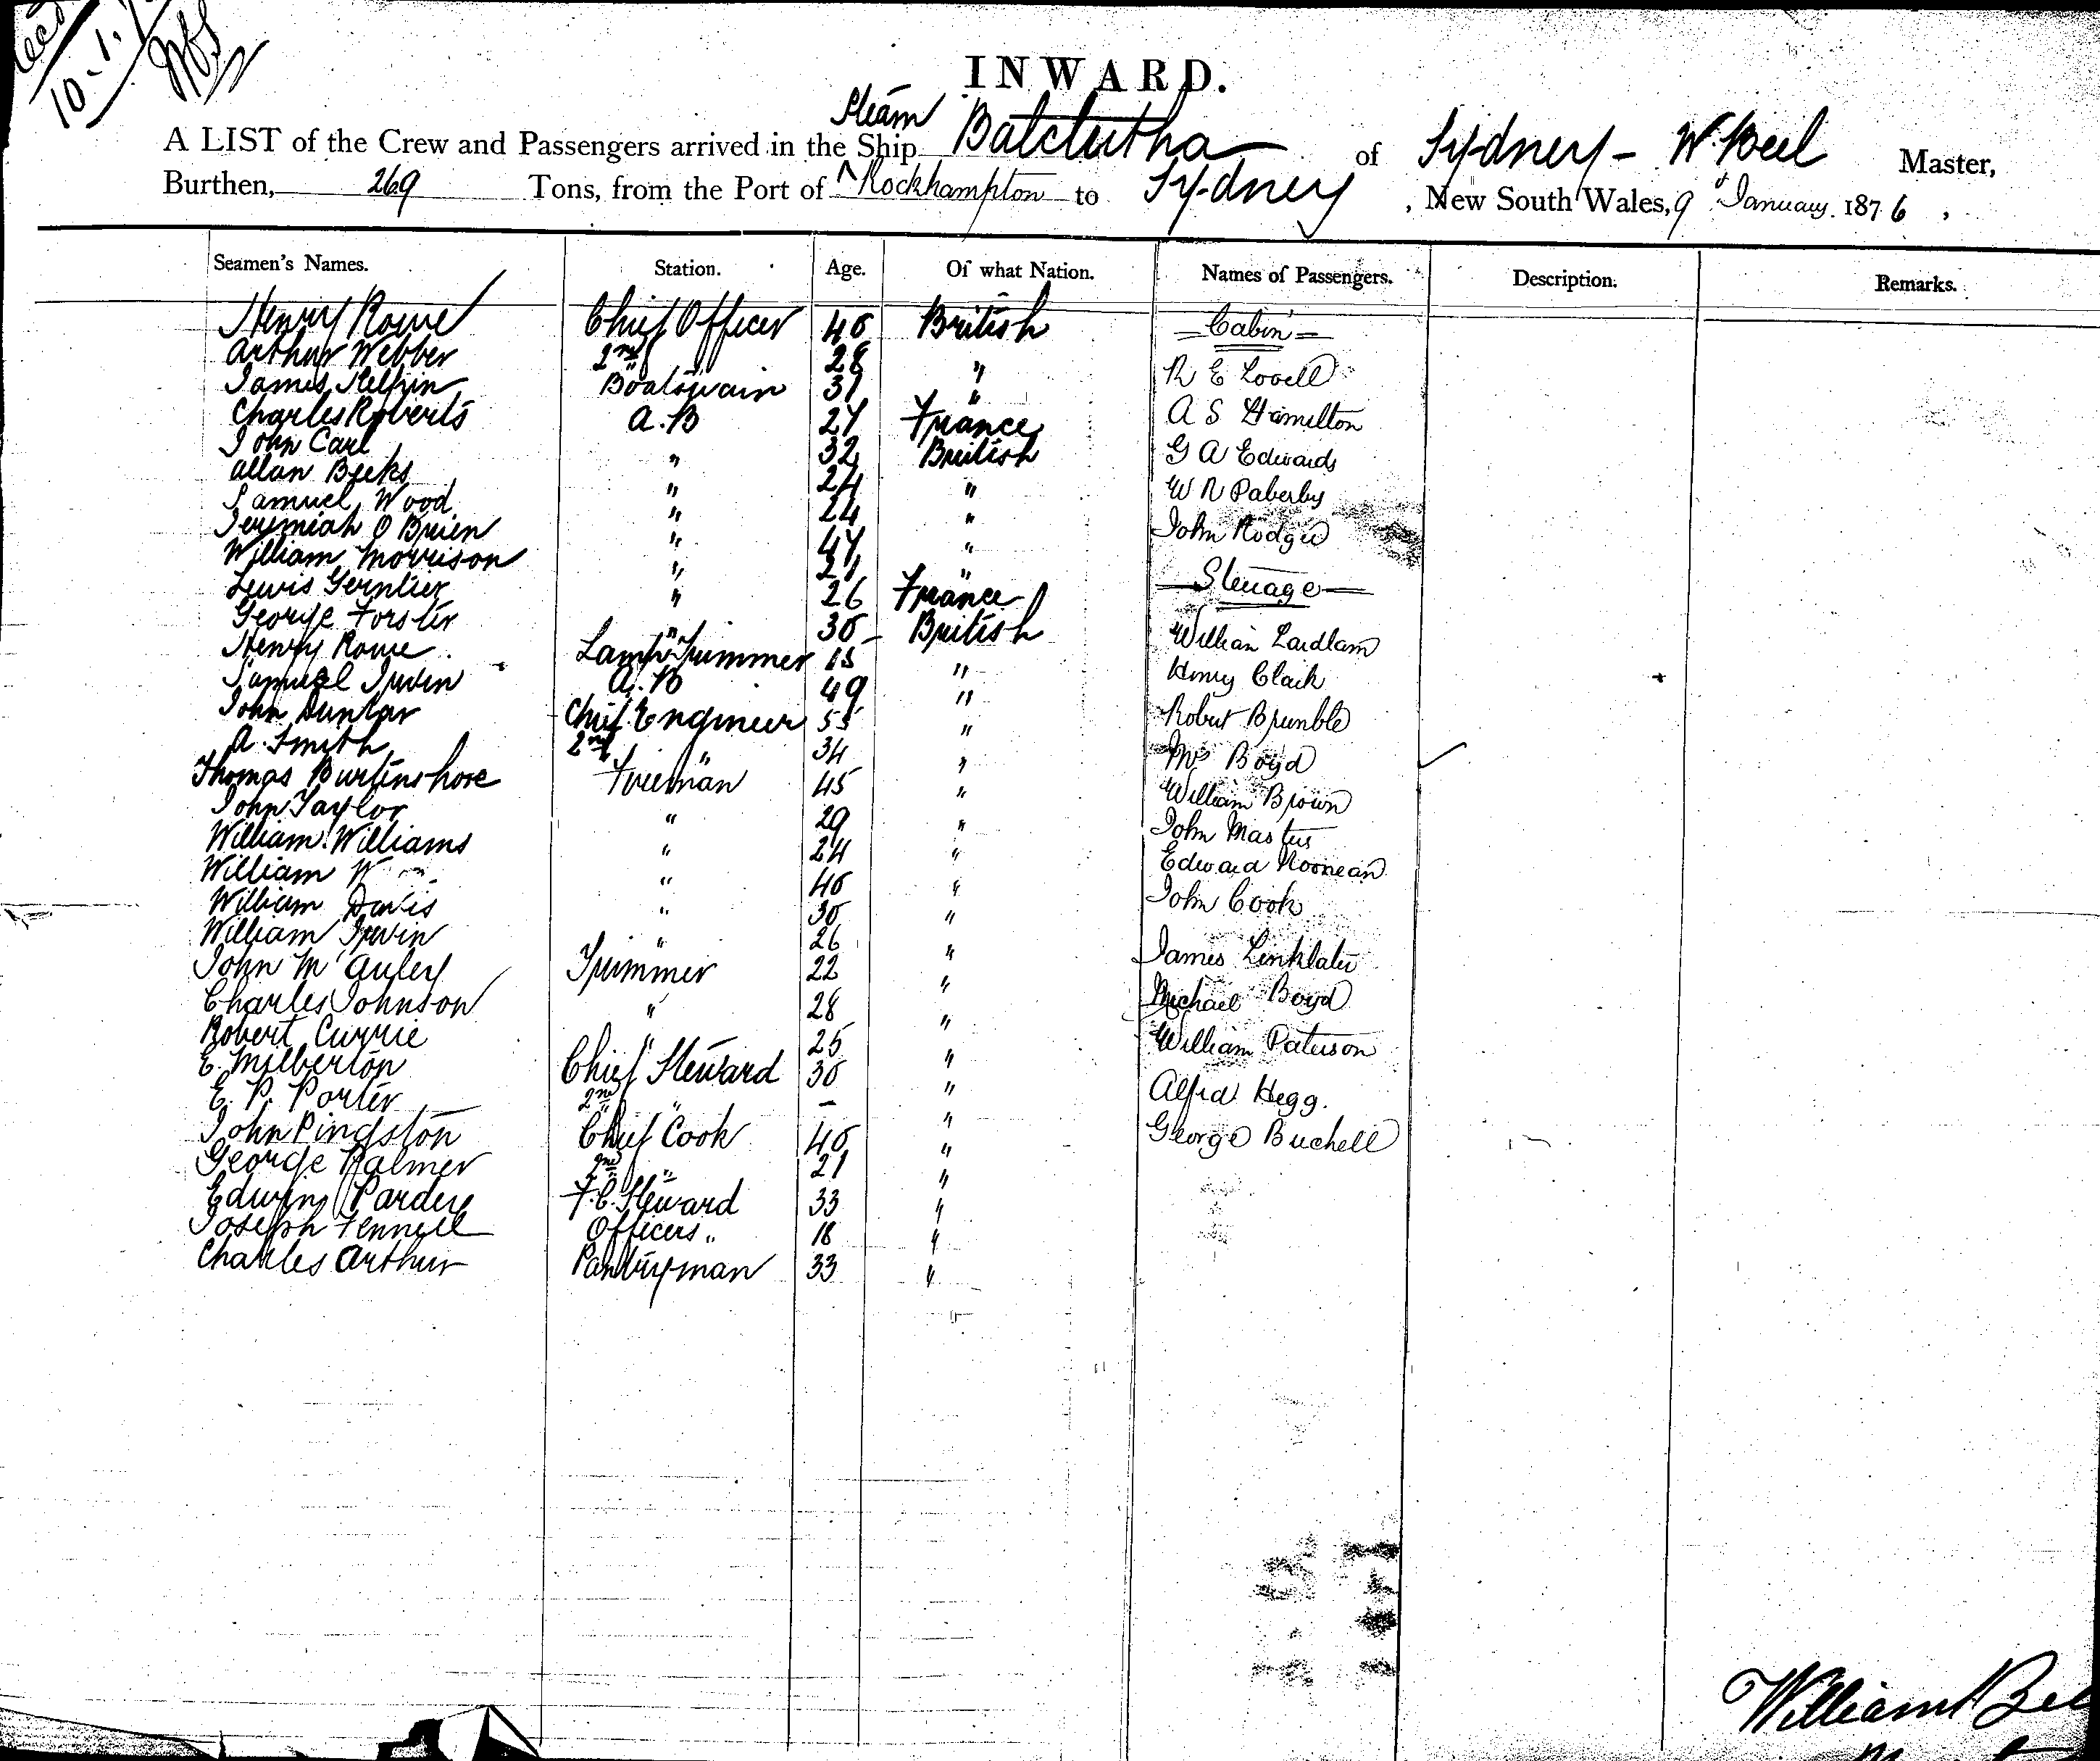 10.1.
INWARD.
A LIST of the Crew and Passengers arrived in the Steam Ship Balclutha of Sydney - W. Beel Master,
Burthen, 269 Tons, from the Port of Rockhampton to Sydney, New South Wales, 9 January 1876,
Seamen's Names. Station. Age. Of what Nation. Names of Passengers. Description. Remarks.
Henry Rowe Chief Officer 40 British — Cabin —
Arthur Webber 2nd " 28 " R E Lovell
James Boatswain 31 " A S Hamilton
Charles Roberts A.B 27 France G A Edwards
John Carl " 32 British W R Paberby
Allan Beeks " 24 " John Rodger
Samuel Wood " 24 " — Steerage —
Jeremiah O Brien " 47 " William Laidlam
William Morrison " 21 " Henry Clark
Lewis " 26 France Robert Brumble
George Forster " 30 British Mrs Boyd
Henry Rowe Lamp Trimmer 15 " William Brown
Samuel Irwin A.B 49 " John Masters
John Dunbar Chief Engineer 55 " Edward Noonean
A. Smith 2nd " 34 " John Cook
Thomas Burtinshore Fireman 45 " James Linklater
John Taylor " 29 " Michael Boyd
William Williams " 24 " William Paterson
William " 40 " Alfred Hegg.
William Davis " 30 " George Buchell
William Irwin " 26 "
John McAuley Trimmer 22 "
Charles Johnson " 28 "
Robert Currie " 25 "
E. Milberton Chief Steward 30 "
E. P. Porter 2nd " — "
John Pingston Chief Cook 40 "
George Palmer 2nd " 21 "
Edwin Pardey F.C. Steward 33 "
Joseph Fennell Officers " 18 "
Charles Arthur Pantryman 33 "
William Bee